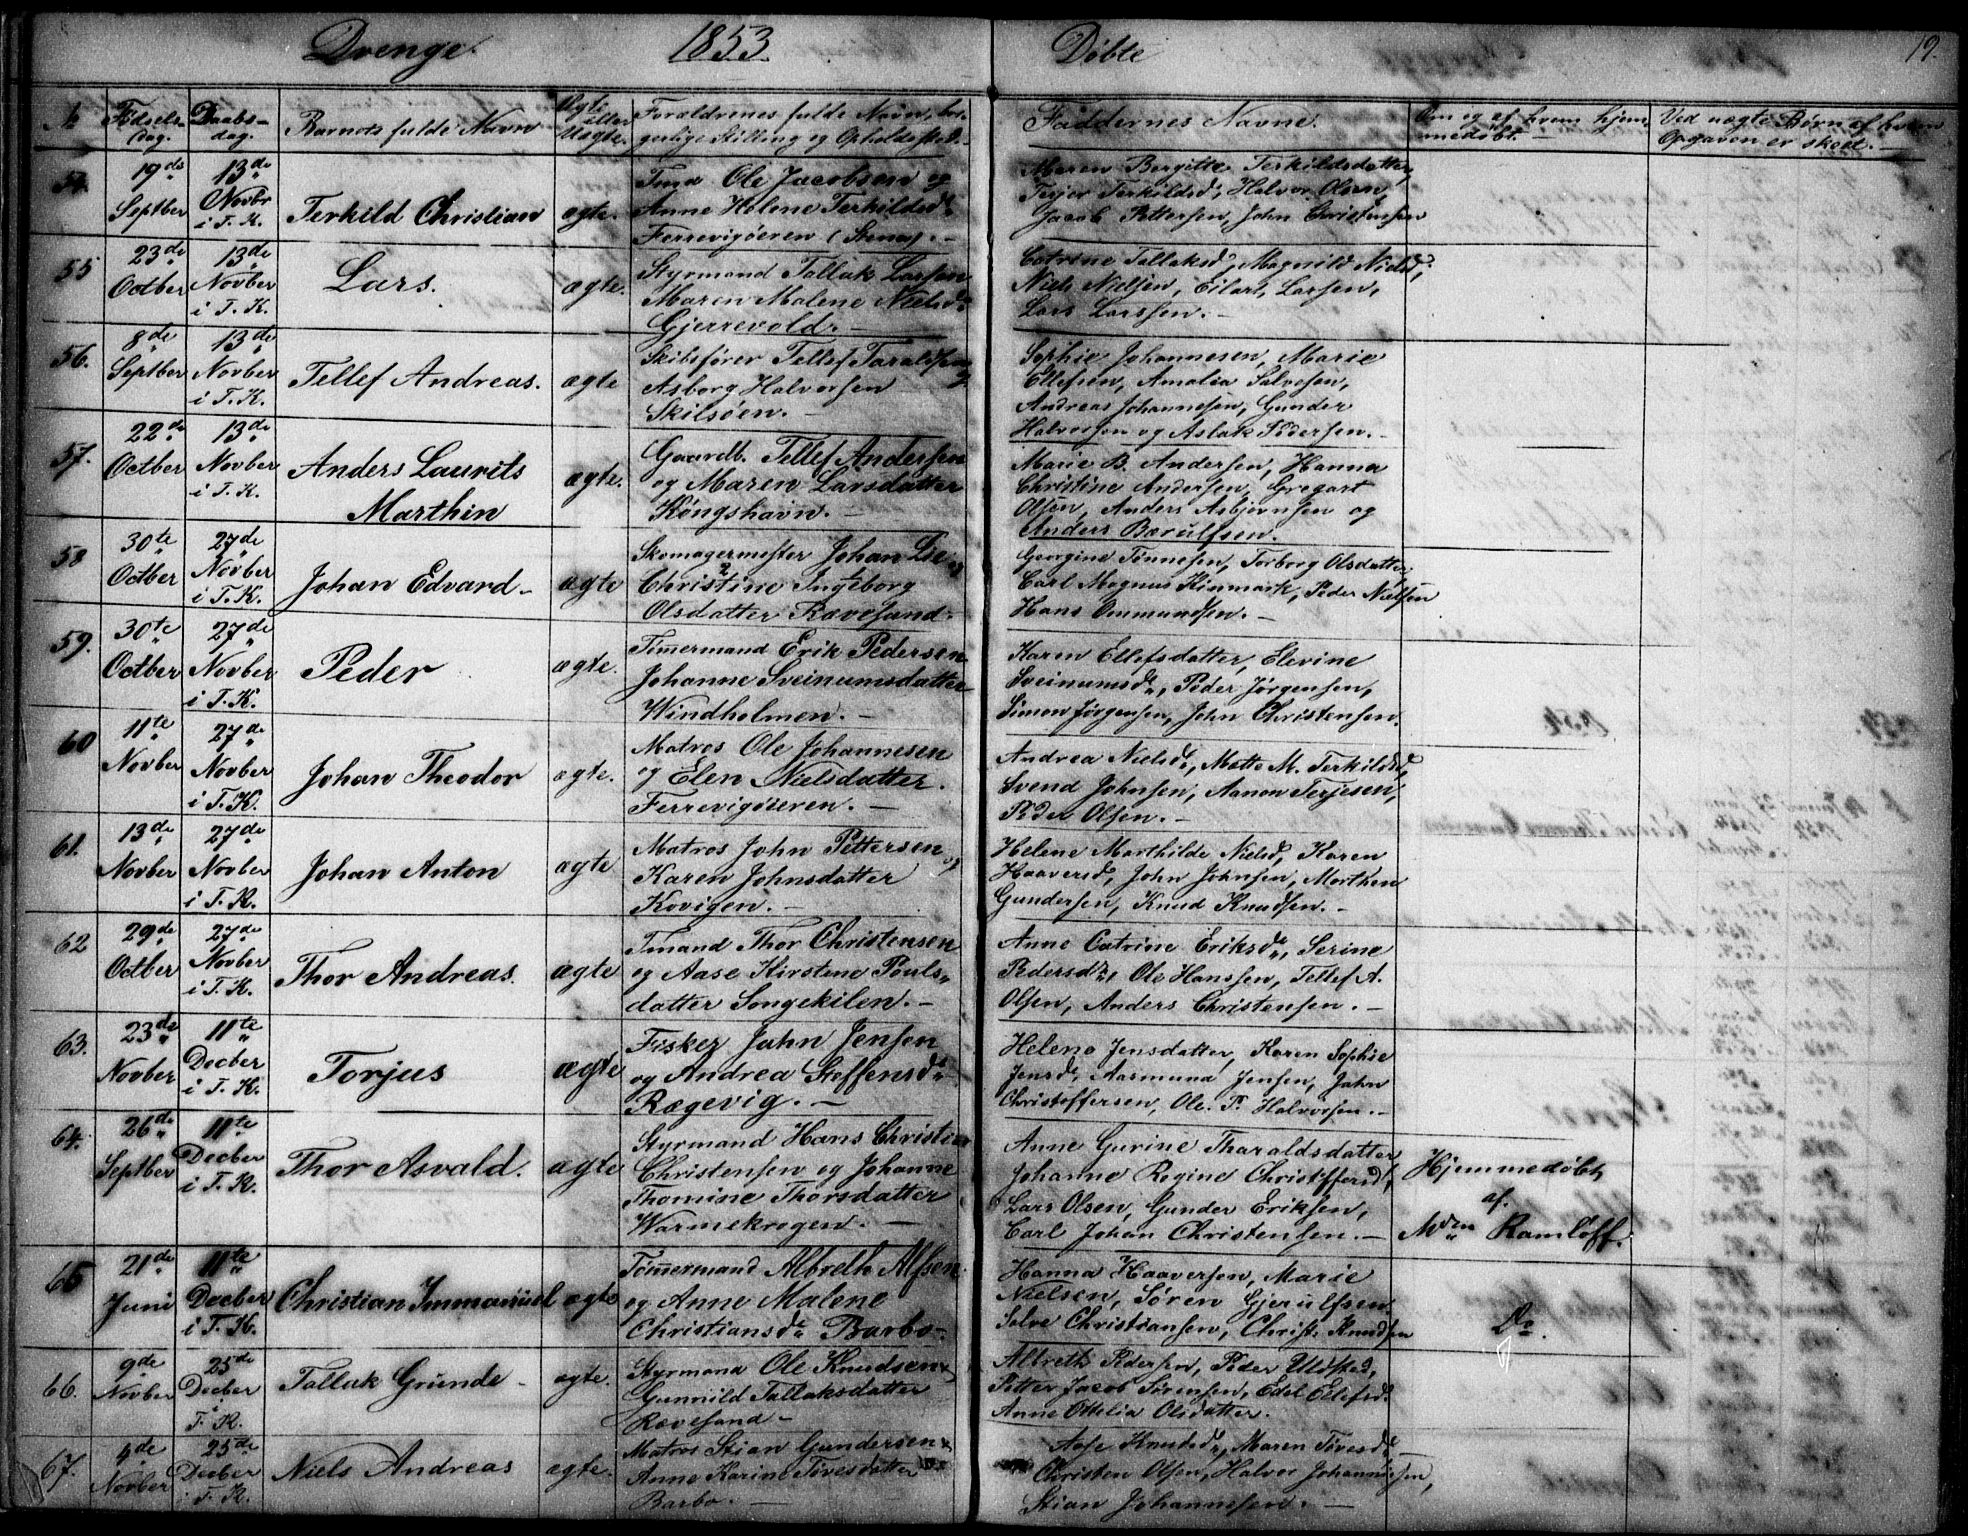 Drenge. 1853. Døbte 19.
No Fødsels-dag. Daabs-dag. Barnets fulde Navn Ægte eller Uægte. Forældrenes fulde Navn, borgerlige Stilling og Opholdssted. Faddernes Navne. Om og af hvem hjemmedøbt. Ved uægte Børn af hvem Opgaven er skeet.
54. 19de Septber 13de Novbr i T. K. Terkild Christian ægte.
Tmd Ole Jacobsen og
Anne Helene Terkildsd.
Ferrevigøeren
Maren Bergitte Terkildsdatter,
Terjer Terkilds, Halvor Olsen,
Jacob Pettersen, John Christensen
55 23de Octber 13de Novber i T. K. Lars. ægte.
Styrmand Tallak Larsen
Maren Malene Nielsd.
Gjerrevold. –
Catrine Tallaksd, Magnild Nielsd,
Niels Nielsen, Eilart Larsen,
Lars Larssen. –
56. 8de Septber 13de Novber i T. K. Tellef Andreas. ægte
Skibsfører Tellef Taraldsen og
Asborg Halvorsen
Skilsøen. –
Sophie Johannesen, Marie
Ellefsen, Amalia Salvesen,
Andreas Johannesen, Gunder
Halvorsen og Aslak Pedersen. –
57. 22de Octber 13de Novber i T. K. Anders Laurits
Marthin ægte.
Gaardb. Tellef Andersen
og Maren Larsdatter
Kongshavn. –
Marie B. Andersen, Hanna
Christine Andersen, Gregart
Olsen, Anders Asbjørnsen og
Anders Bærulfsen.
58 30te Octber 27de Novber i T. K. Johan Edvard – ægte
Skomagermester Johan Lie og
Christine Ingeborg
Olsdatter Rævesand. –
Georgine Tønnesen, Torborg Olsdatter,
Carl Magnus Kinmark, Peder Nielsen
Hans Ommundsen. –
59. 30te Octber 27de Novber i T. K. Peder ægte.
Timermand Erik Pedersen
Johanne Sveinumsdatter
Windholmen. –
Karen Ellefsdatter, Elevine
Sveinumsd., Peder Jørgensen,
Simon Jørgensen, John Christensen.
60 11te Novber 27de Novber i T. K. Johan Theodor ægte.
Matros Ole Johannesen
og Elen Nielsdatter.
Ferrevigøeren. –
Andrea Nielsd., Mette M. Terkildsd,
Svend Johnsen, Aanon Terjesen,
Peder Olsen. –
61. 13de Novber 27de Novber i T. K. Johan Anton ægte
Matros John Pettersen og
Karen Johnsdatter
Kovigen. –
Helene Marthilde Nielsd, Karen
Haaversd, John Johnsen, Morthen
Gundersen, Knud Knudsen. –
62 29de Octber 27de Novber i T. K. Thor Andreas. ægte
Tmand Thor Christensen
og Aase Kirstene Pouls-
datter Songekilen. –
Anne Catrine Eriksd., Serine
Pedersd., Ole Hanssen, Tellef A.
Olsen, Anders Christensen. –
63. 23de Novber 11te Decber i T. K. Torjus ægte
Fisker Jahn Jensen
og Andrea Steffensd.
Rægevig. –
Helene Jensdatter, Karen Sophie
Jensd, Aasmund Jensen, Jahn
Christoffersen, Ole. P. Halvorsen. –
64. 26de Septber 11te Decber i T. K. Thor Asvald. ægte
Styrmand Hans Christian
Christensen og Johanne
Thomine Thorsdatter
Warmekrogen. –
Anne Gurine Tharaldsdatter
Johanne Regine Christoffersd,
Lars Olsen, Gunder Eriksen,
Carl Johan Christensen. –
Hjemmedøbt
af.
Mden Ramløff.
65 21de Juni 11te Decber i T. K. Christian Immanuel ægte
Tømmermand Albreth Alfsen
og Anne Malene
Christiansd. Barbo –
Hanna Haaversen, Marie
Nielsen, Søren Gjerulfsen.
Salve Christiansen, Christ. Knudsen
Do.
66. 9de Novber 25de Decber i T. K. Tallak Grunde – ægte.
Styrmand Ole Knudsen
Gunnild Tallaksdatter
Rævesand –
Albreth Pedersen, Peder Uldsted,
Petter Jacob Sørensen, Edel Ellefsd.
Anne Ottelia Olsdatter.
67. 4de Novber 25de Decber i T. K. Niels Andreas ægte.
Matros Stian Gundersen
Anne Karine Tovesdatter
Barbo. –
Aase Knudsd., Maren Tovesd.
Christen Olsen, Halvor Johannesen,
Stian Johannesen. –